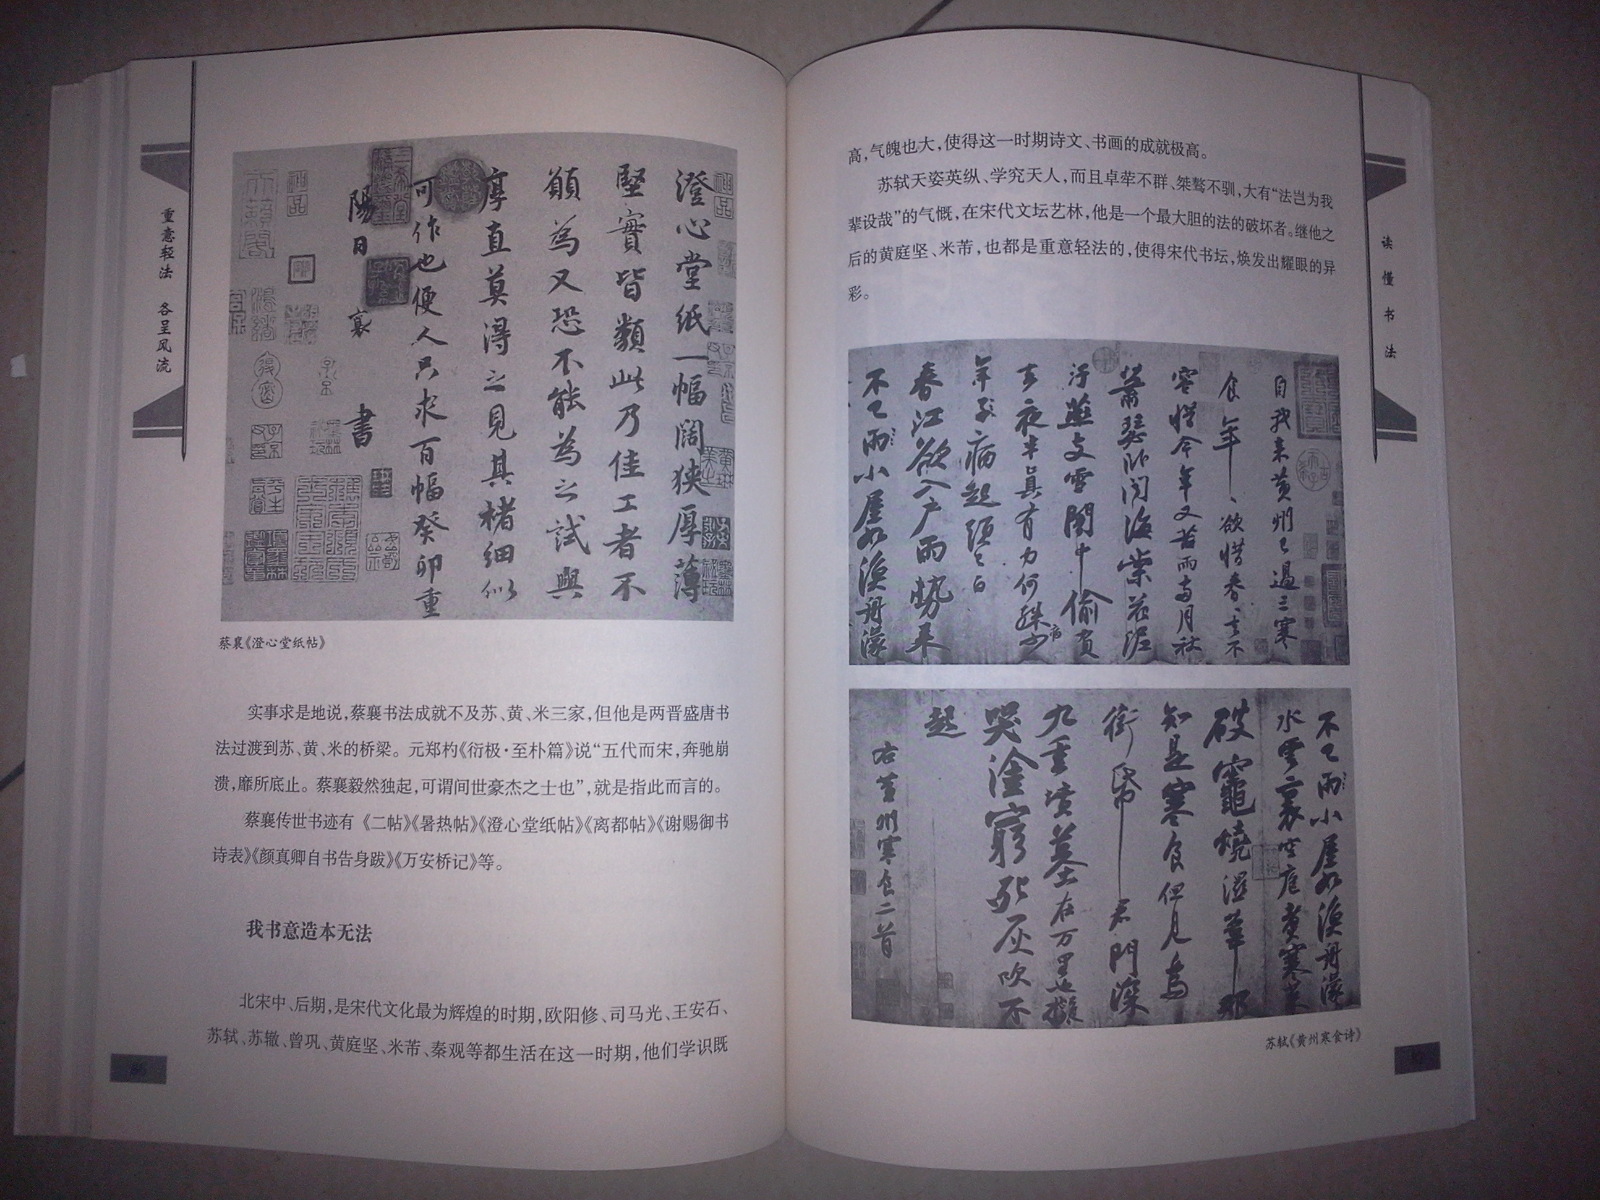 重意轻法 各呈风流
澄心堂纸一幅阔狭厚薄
堅實皆類此乃佳工者不
願為又恐不能為之試與
厚直莫得之見其楮細似
可作也便人只求百幅癸卯重
陽日襄書
蔡襄《澄心堂纸帖》
实事求是地说,蔡襄书法成就不及苏、黄、米三家,但他是两晋盛唐书
法过渡到苏、黄、米的桥梁。元郑杓《衍极·至朴篇》说“五代而宋,奔驰崩
溃,靡所底止。蔡襄毅然独起,可谓间世豪杰之士也”,就是指此而言的。
蔡襄传世书迹有《二帖》《暑热帖》《澄心堂纸帖》《离都帖》《谢赐御书
诗表》《颜真卿自书告身跋》《万安桥记》等。
我书意造本无法
北宋中、后期,是宋代文化最为辉煌的时期,欧阳修、司马光、王安石、
苏轼、苏辙、曾巩、黄庭坚、米芾、秦观等都生活在这一时期,他们学识既
读懂书法
高,气魄也大,使得这一时期诗文、书画的成就极高。
苏轼天姿英纵、学究天人,而且卓荦不群、桀骜不驯,大有“法岂为我
辈设哉”的气慨,在宋代文坛艺林,他是一个最大胆的法的破坏者。继他之
后的黄庭坚、米芾,也都是重意轻法的,使得宋代书坛,焕发出耀眼的异
彩。
自我来黄州已過三寒
食年、欲惜春、去不
容惜今年又苦雨兩月秋
蕭瑟卧聞海棠花泥
汙燕支雪闇中偷負
去夜半真有力何殊少
年子病起頭已白
春江欲入户雨勢来
不已雨小屋如漁舟濛
不已雨小屋如漁舟濛
水雲裏空庖煮寒菜
破竈燒濕葦那
知是寒食但見烏
銜帋君門深
九重墳墓在万里也擬
哭塗窮死灰吹不
起
右黄州寒食二首
苏轼《黄州寒食诗》